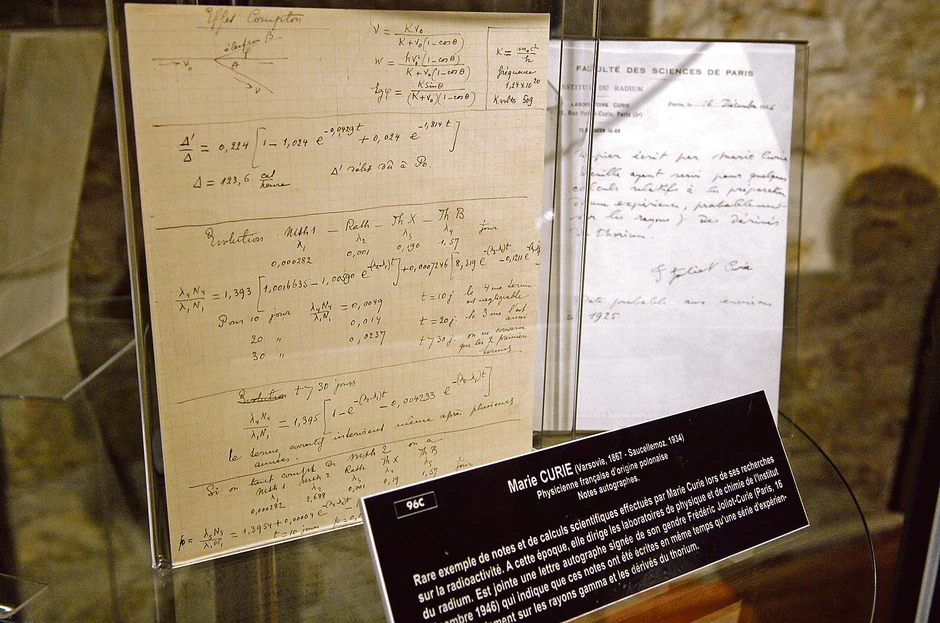 Effet Compton
électron β
θ
ν₀
ν
φ
ν = Kν₀ / K+ν₀(1-cosθ)
w = hν₀² (1-cosθ) / K+ν₀(1-cosθ)
tgφ = K sinθ / (K+ν₀)(1-cosθ)
K = m₀c² / h
fréquence
1,24×10²⁰
Kvolts 509
Δ'/Δ = 0,224 [1 - 1,024 e^-0,0429t + 0,024 e^-1,814t]
Δ = 123,6 cal/heure
Δ' débit dû à Po.
Evolution Msth1 - Rath - Th X - Th B
λ₁ λ₂ λ₃ λ₄ jour
0,000282 0,001 0,190 1,57
λ₄N₄/λ₁N₁ = 1,393 [1,0016635 - 1,00590 e^-(λ₂-λ₁)t] + 0,0007246 [8,319 e^-(λ₃-λ₁)t - 0,1211 e
Pour 10 jours λ₄N₄/λ₁N₁ = 0,0049 t = 10j le 4me terme est négligeable
20 " 0,014 t = 20j le 3me l'est aussi
30 " 0,0237 t > 30j on ne conserve que les 2 premiers termes
Evolution t > 30 jours
λ₄N₄/λ₁N₁ = 1,395 [1 - e^-(λ₂-λ₁)t - 0,004233 e^-(λ₂-λ₁)t]
le terme correctif intervient même après plusieurs
années.
Si on tient compte de Msth 2 on a
Msth 1 Msth 2 Rath Th X Th B
0,000282 2,688 0,001 0,19 1,57 jour
= 1,3954 + 0,00004 e
t = 10 jours
FACULTÉ DES SCIENCES DE PARIS
INSTITUT DU RADIUM
LABORATOIRE CURIE
Rue Pierre-Curie, Paris (5e)
Paris, le 16 Décembre
Papier écrit par Marie Curie
ayant servi pour quelques
calculs relatifs à la préparation
d'une expérience, probablement
sur les rayons γ des dérivés
du thorium.
F. Joliot Curie
Date probable aux environs
1925
96C
Marie CURIE (Varsovie, 1867 - Saucellemoz, 1934)
Physicienne française d'origine polonaise
Notes autographes.
Rare exemple de notes et de calculs scientifiques effectués par Marie Curie lors de ses recherches
sur la radioactivité. A cette époque, elle dirige les laboratoires de physique et de chimie de l'Institut
du radium. Est jointe une lettre autographe signée de son gendre Frédéric Joliot-Curie (Paris, 16
décembre 1946) qui indique que ces notes ont été écrites en même temps qu'une série d'expérien-
sur les rayons gamma et les dérivés du thorium.